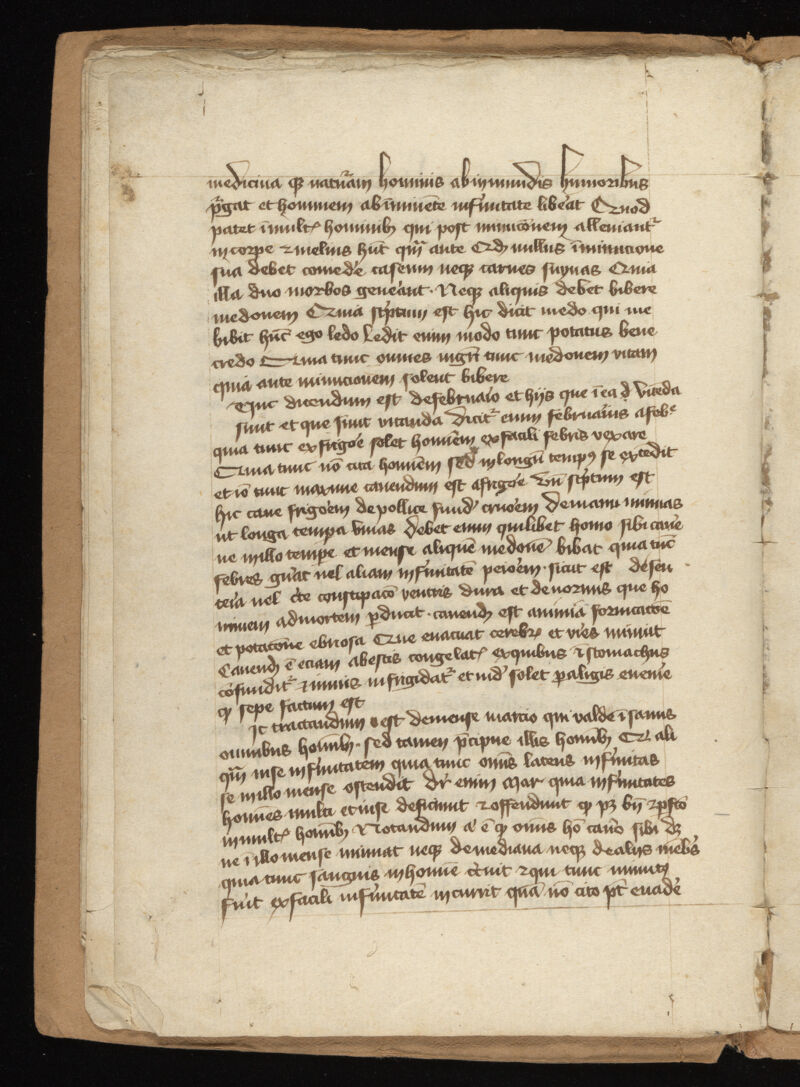 medicina que naturam hominis ab inmundis humoribus
purgat et hominem ab iminente infirmitate liberat Quod
patet in multis hominibus qui post minucionem alleviantur
in corpore et melius habent quam ante Quod nullus in minucione
sua debet comedere caseum neque carnes suynas Quia
illa duo morbos generant. Neque aliquis debet bibere
medonem Quia scriptum est hic dicit medo qui me
bibit hunc ego ledo Ledit enim modo tunc potatus bene
credo Quia tunc omnes tunc medonem vitam
quia ante minucionem solent bibere
Nunc dicendum est de februario et hiis que in ea de vitanda
sunt et que sunt vitanda Dicitur enim februarius a febre
quia tunc ex frigore solet hominem ex facili febris vexare
Quia tunc non cita hominem sed in longum tempus se extendit
et ideo tunc maxime cavendum est a frigore Unde scriptum est
hic cave frigorem de pollice funde cruorem De manu minuas
ut longa tempora vivas Debet enim quilibet homo sibi cavere
ne in illo tempore et mense aliquem medonem bibat quia tunc
febres generat vel aliam infirmitatem peiorem. sicut est dissen
teria vel de constipacione ventris dura et de vormis que ho
minem ad mortem perducit. cavendum est a nimia fornicatione
et potatione ebriosa Que evacuat cerebrum et vires minuit
Cavendum est etiam ab escis congelatis ex quibus et stomachus
confunditur et nimis infrigidatur et inde solet paraligis evenire
quod sepe factum est
Hic tractandum est de mense marcio qui valde est insanus
omnibus hominibus. sed tamen precipue illis hominibus Qui ali
quam in se infirmitatem quia tunc omnis latens infirmitas
se in illo mense ostendit Dicitur enim Mar quia infirmitates
homines multi et in se deficiunt et offendunt
in multis hominibus Notandum autem est quod omnis homo caveat sibi
ne in illo mense minuat neque de mediana neque de aliis membris
quia tunc sanguis in homine crevit et qui tunc minuti
fuerit ex facili infirmitatem incurrit quam non cito potest evadere